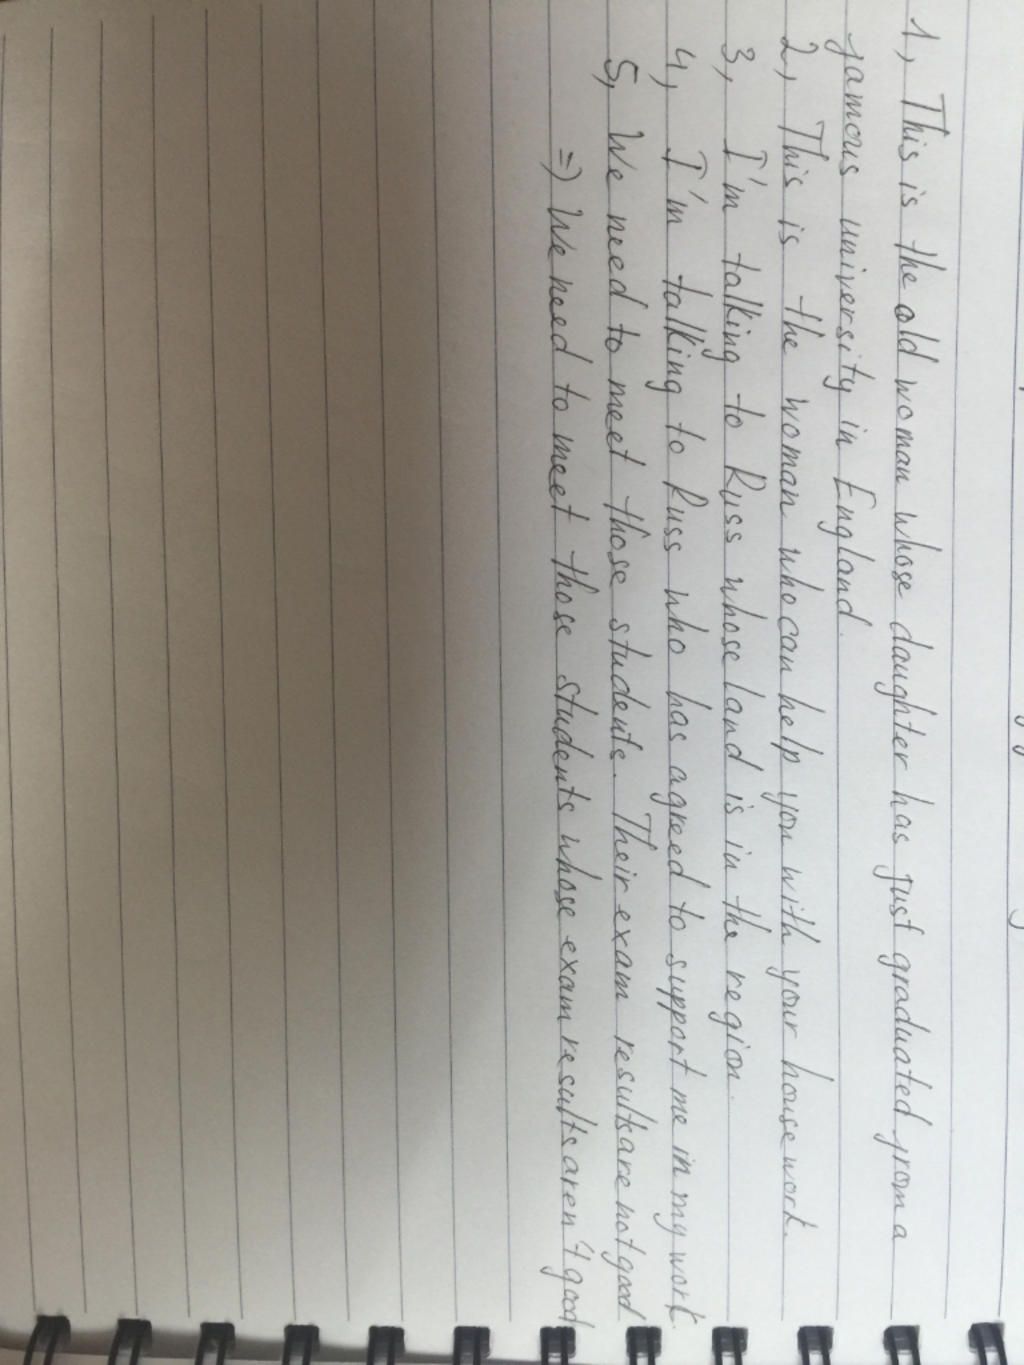 1, This is the old woman whose daughter has just graduated from a
famous university in England.
2, This is the woman who can help you with your housework.
3, I'm talking to Russ whose land is in the region.
4, I'm talking to Russ who has agreed to support me in my work.
5, We need to meet those students. Their exam results are not good
=) We need to meet those students whose exam results aren't good